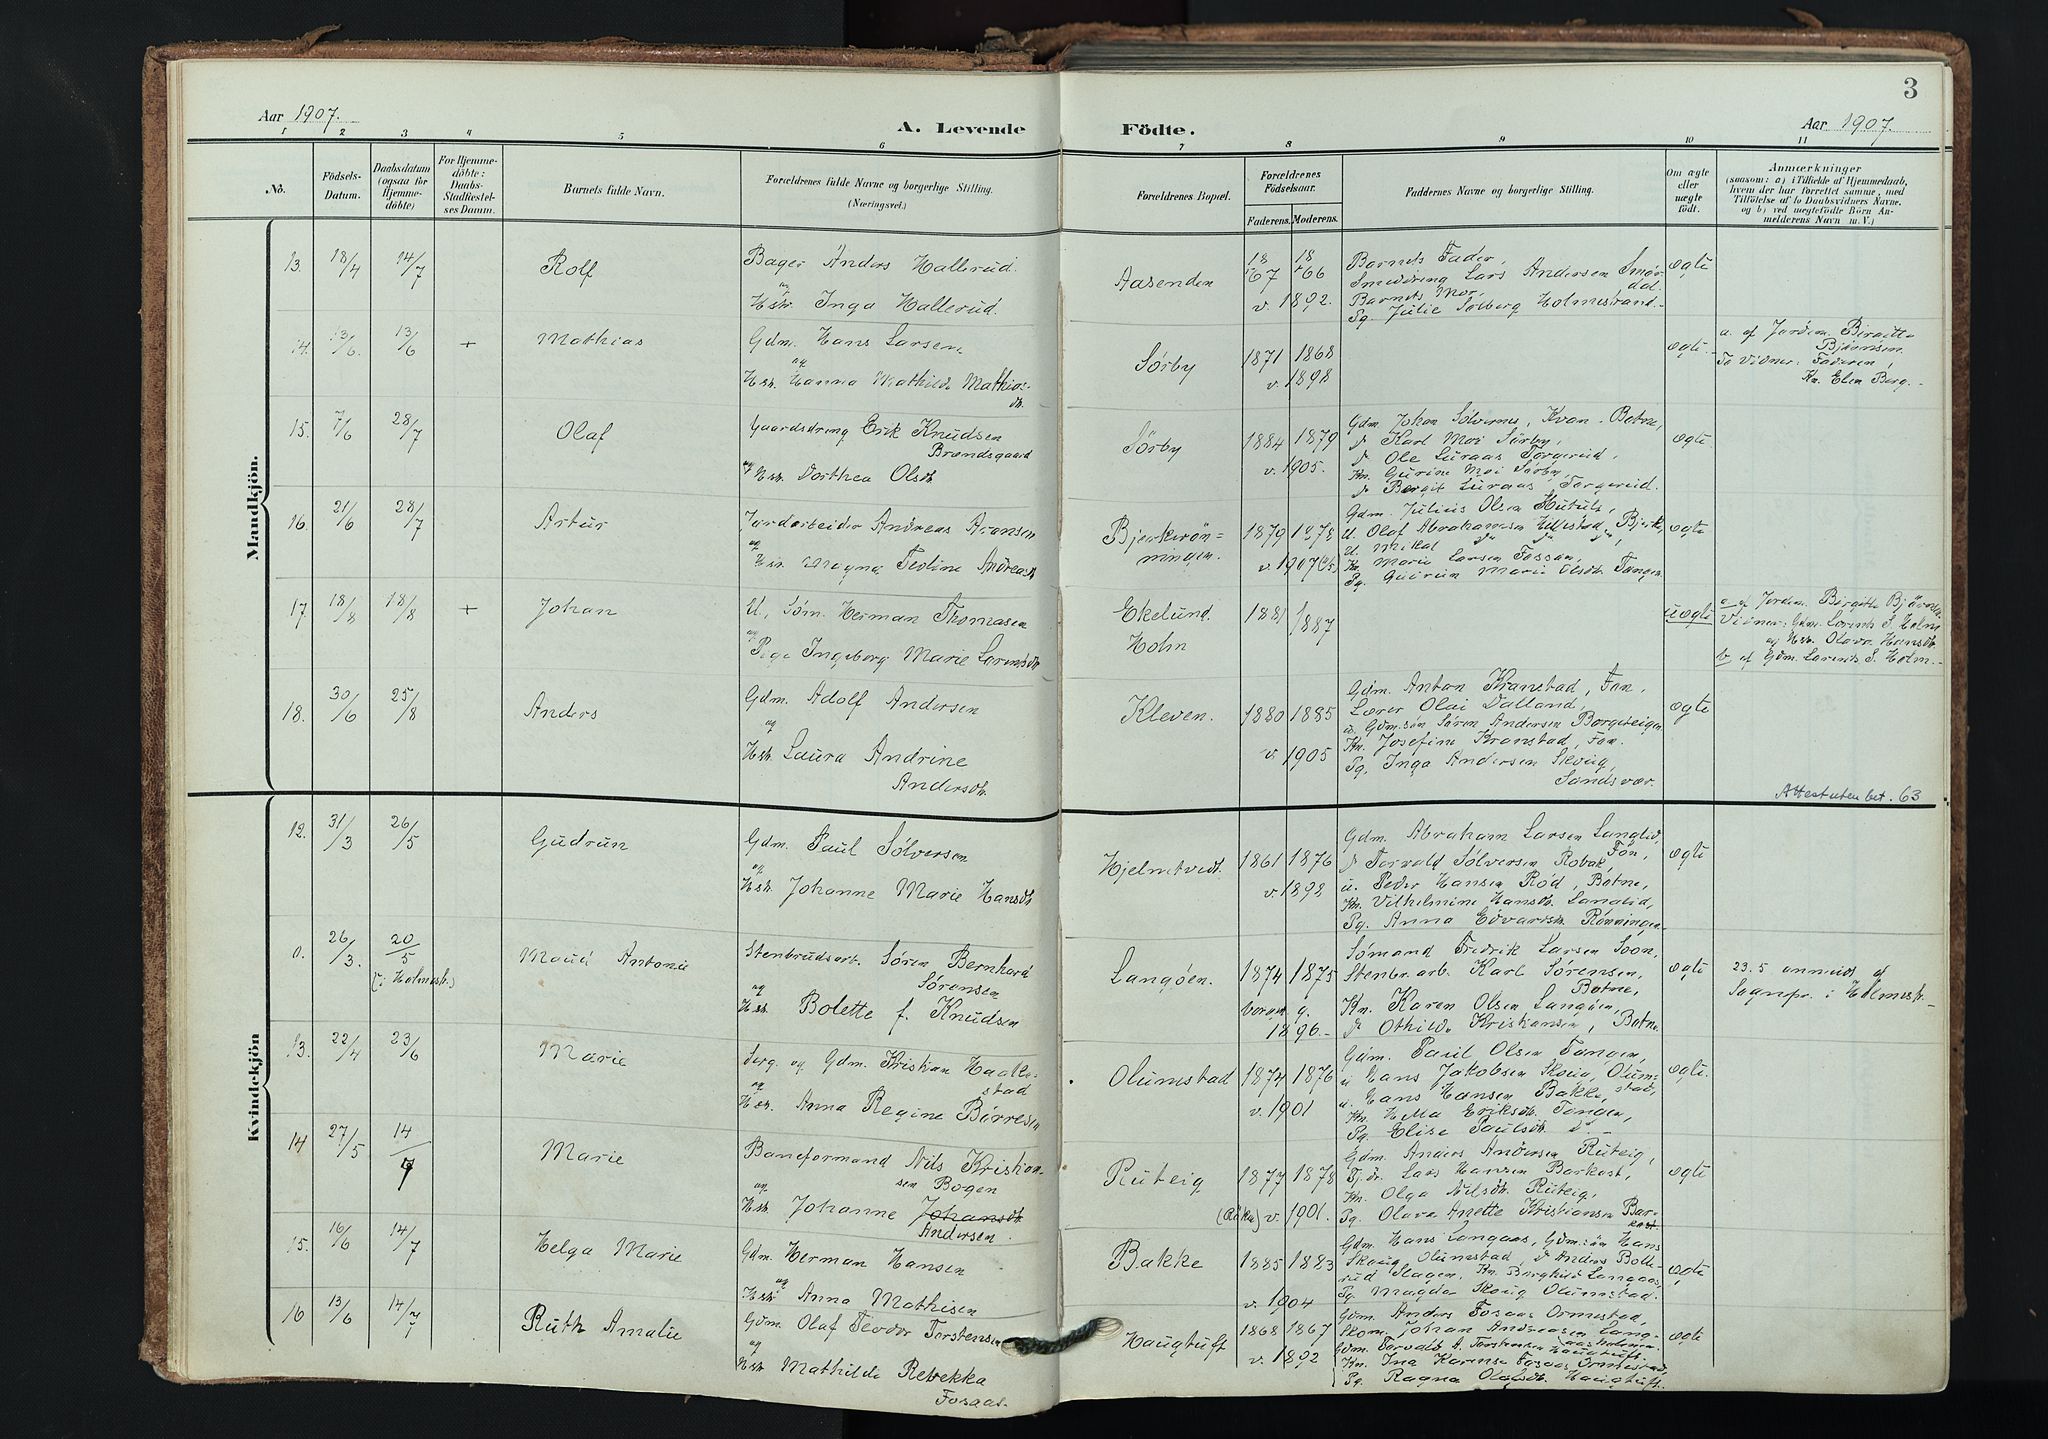 3
Aar 1907.
A. Levende
Födte.
Aar 1907.
1 2 3 4 5 6 7 8 9 10 11
No.
Födsels-
Datum.
Daabsdatum
(ogsaa for
Hjemme-
döbte)
For Hjemme-
döbte:
Daabs-
Stadfæstel-
ses Datum.
Barnets fulde Navn.
Forældrenes fulde Navne og borgerlige Stilling.
(Næringsvei.)
Forældrenes Bopæl.
Forældrenes
Födselsaar.
Faderens. Moderens.
Faddernes Navne og borgerlige Stilling.
Om ægte
eller
uægte
født.
Anmærkninger
(saasom: a) i Tilfælde af Hjemmedaab,
hvem der har forrettet samme, med
Tilföielse af to Daabsvidners Navne.
og b) ved uægtefödte Börn An-
melderens Navn m. V.)
Mandkjön.
13. 18/4 14/7 Rolf
Bager Anders Hallerud.
og
Hstr. Inga Hallerud.
Aasenden
18 18
67 66
v. 1892.
Barnets Fader,
Smeddreng Lars Andersen Smør-
dal.
Barnets Mor,
Pg. Julie Solberg Holmestrand.
ægte
14. 13/6. 13/6 + Mathias
Gdm. Hans Larsen
og
Hstr. Hanna Mathilde Mathias-
dtr.
Sørby
1871 1868
v. 1898
ægte.
a. af Jordm. Birgitte
Bjørnsen.
To Vidner: Faderen,
Kn. Elen Berg.
15. 7/6 28/7 Olaf
Gaardsdreng Erik Knudsen
Brændsgaard
og Hstr. Dorthea Olsdtr.
Sörby
1884 1879
v. 1905.
Gdm. Johan Sølversen, Kvan. Botne,
d. Karl Moi Sørby,
d. Ole Luraas Torgerud,
Kn. Gurine Moi Sørby,
d. Bergit Luraas, Torgerud.
ægte
16. 21/6 28/7 Artur
Jordarbeider Andreas Aronsen
og
Hstr. Magna Teoline Andreasdtr
Bjerkerön-
ningen.
1879 1878
v. 1907
Gdm. Julius Olsen
U. Olaf Abrahamsen Hillestad, Bjerke,
U. Mikal
Kn. Marie Larsen Fossan,
Pg. Gudrun Marie Olsdtr. Tangen.
ægte
17. 18/8 18/8 + Johan
U., Søm. Herman Thomasen
og
Pige Ingeborg Marie Larentsdtr
Ekelund.
Holm
1881 1887
uægte
a af Jordm. Birgitte Bjørnsen.
Vidner: Gdm. Larents S. Holm
og Hstr. Olava Hansdtr.
b af Gdm. Larents S. Holm.
18. 30/6 25/8 Anders
Gdm. Adolf Andersen
og
Hstr. Laura Andrine
Andersdtr.
Kleven.
1880 1885
v. 1905
Gdm. Anton Kranstad, Fon,
Lærer Olai Dalland,
u. Gdm.søn Søren Andersen Borgeteigen
Kn. Josefine Kranstad, Fon.
Pg. Inga Andersen Skoug,
Sandsvær.
ægte
Attest uten bet. 63
Kvindekjön
12. 31/3 26/5 Gudrun
Gdm. Paul Sølversen
og
Hstr. Johanne Marie Hansdtr
Hjelmtvedt.
1861 1876
v. 1898
Gdm. Abraham Larsen Langlid,
Fön,
d. Torvald Sølversen Robak,
u. Peder Hansen Rød, Botne,
Kn. Vilhelmine Hansdtr. Langlid,
Pg. Anna Edvardsdtr. Rønningen.
ægte
0. 26/3. 20/5 Maud Antonie
(i Holmestr.)
Stenbrudsarb. Sören Bernhard
Sörensen
og
Hstr. Bolette f. Knudsen
Langöen.
1874 1875
borgerl. g.
1896.
Sømand Fredrik Larsen Soon,
Stenbr.arb. Karl Sörensen,
Botne,
Kn. Karen Olsen Langøen,
d. Othilde Kristiansen, Botne
ægte
23.5 anmeldt af
Sognepr. i Holmestr.
13. 22/4 23/6 Marie
Serg. og Gdm. Kristian Haake-
stad
og
Hstr. Anna Regine Børresen
Olumstad
1874 1876
v. 1901
Gdm. Paul Olsen Tangen,
u. Hans Jakobsen Skoug, Olum-
stad,
u. Hans Hansen Bakke,
Kn. Hella Eriksdtr. Tangen,
Pg. Elise Paulsdtr. d.
ægte.
14 27/5 14/7 Marie
Baneformand Nils Kristian-
sen Bogen
og
Hstr. Johanne Johansdtr
Andersen.
Ruteig
1877 1878
v. 1901.
Gdm. Anders Andersen Ruteig,
Tj.dr. Lars Hansen Barkost,
Kn. Olga Nilsdtr. Ruteig,
Pg. Olava Anette Kristiansen Bar-
kost
ægte
15. 16/6 14/7 Helga Marie
Gdm. Herman Hansen
og
Hstr Anna Mathisen
Bakke
1885 1883
v. 1904
Gdm. Hans Langaas, Gdm.søn Hans
Skoug Olumstad, d Anders Bolle-
rud Slagen, Kn. Borghild Langaas,
Pg. Magda Skoug Olumstad.
ægte
16 13/6 14/7 Ruth Amalie
Gdm. Olaf Teodor Torstensen
og
Hstr Mathilde Rebekka
Fosaas.
Haugtuft
1868 1867
v. 1892
Gdm. Anders Fosaas Ormestad,
Skom. Johan Andreasen Lang-
Gdm. Torvald A. Torstensen Haugtuft.
Kn. Ina Karense Fosaas Ormestad,
Pg. Ragna Olafsdtr. Haugtuft.
ægte